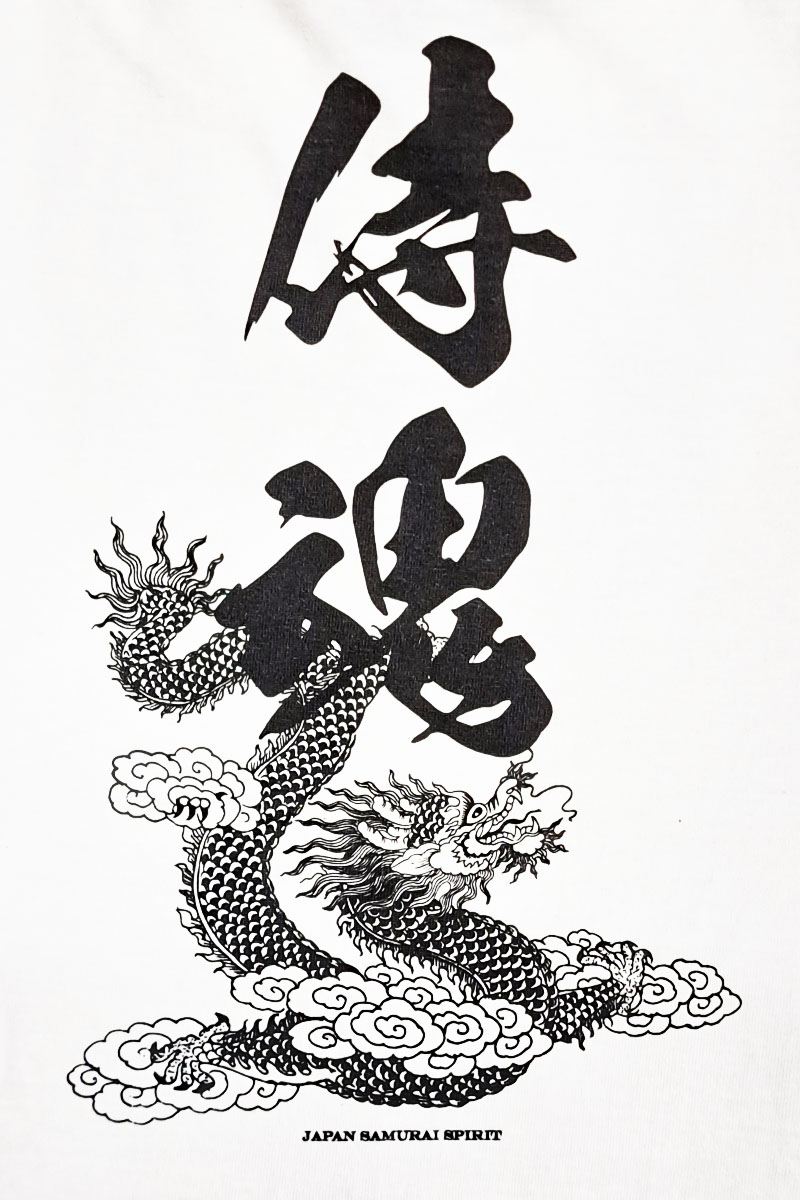 侍
魂
JAPAN SAMURAI SPIRIT